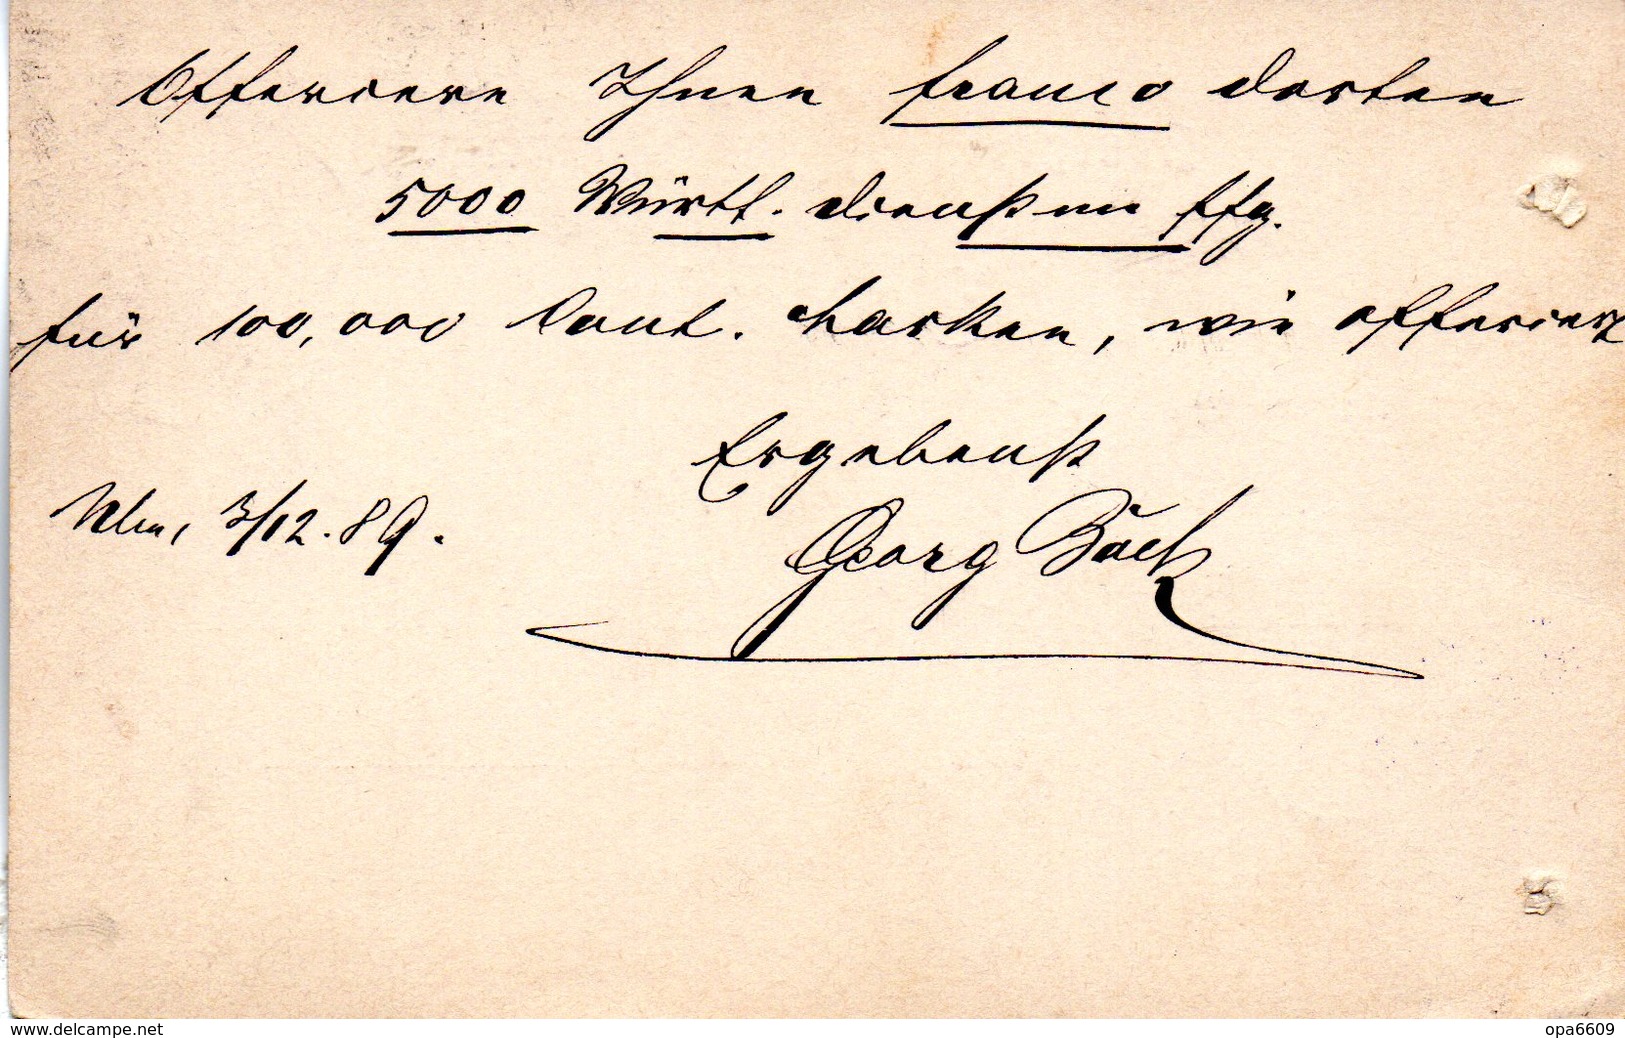 Offeriere Ihnen franco dorten
5000 Württ. dienst
für 100,000 Marken, wie offeriert
Ergebenst
Ulm, 3/12.89.
Georg Buck
www.delcampe.net
opa6609